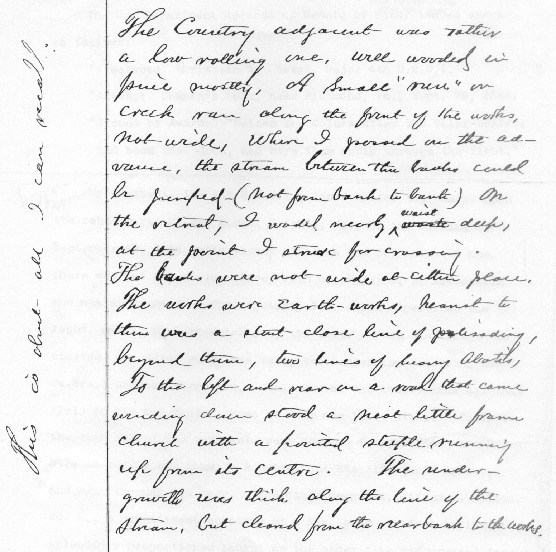 The Country adjacent was rather
a low rolling one, well wooded in
pine mostly, A small "run" or
creek ran along the front of the works,
not wide, Where I passed on the ad-
vance, the stream between the banks could
be jumped - (not from bank to bank) On
the retreat, I waded nearly waist deep,
at the point I struck for crossing.
The banks were not wide at either place.
The works were Earth-works, nearest to
them was a stout close line of palisading,
beyond them, two lines of heavy Abatis,
To the left and rear on a road that came
winding down stood a neat little frame
church with a pointed steeple running
up from its centre. The under-
growth was thick along the line of the
stream, but cleared from the near bank to the works.
This is about all I can recall!